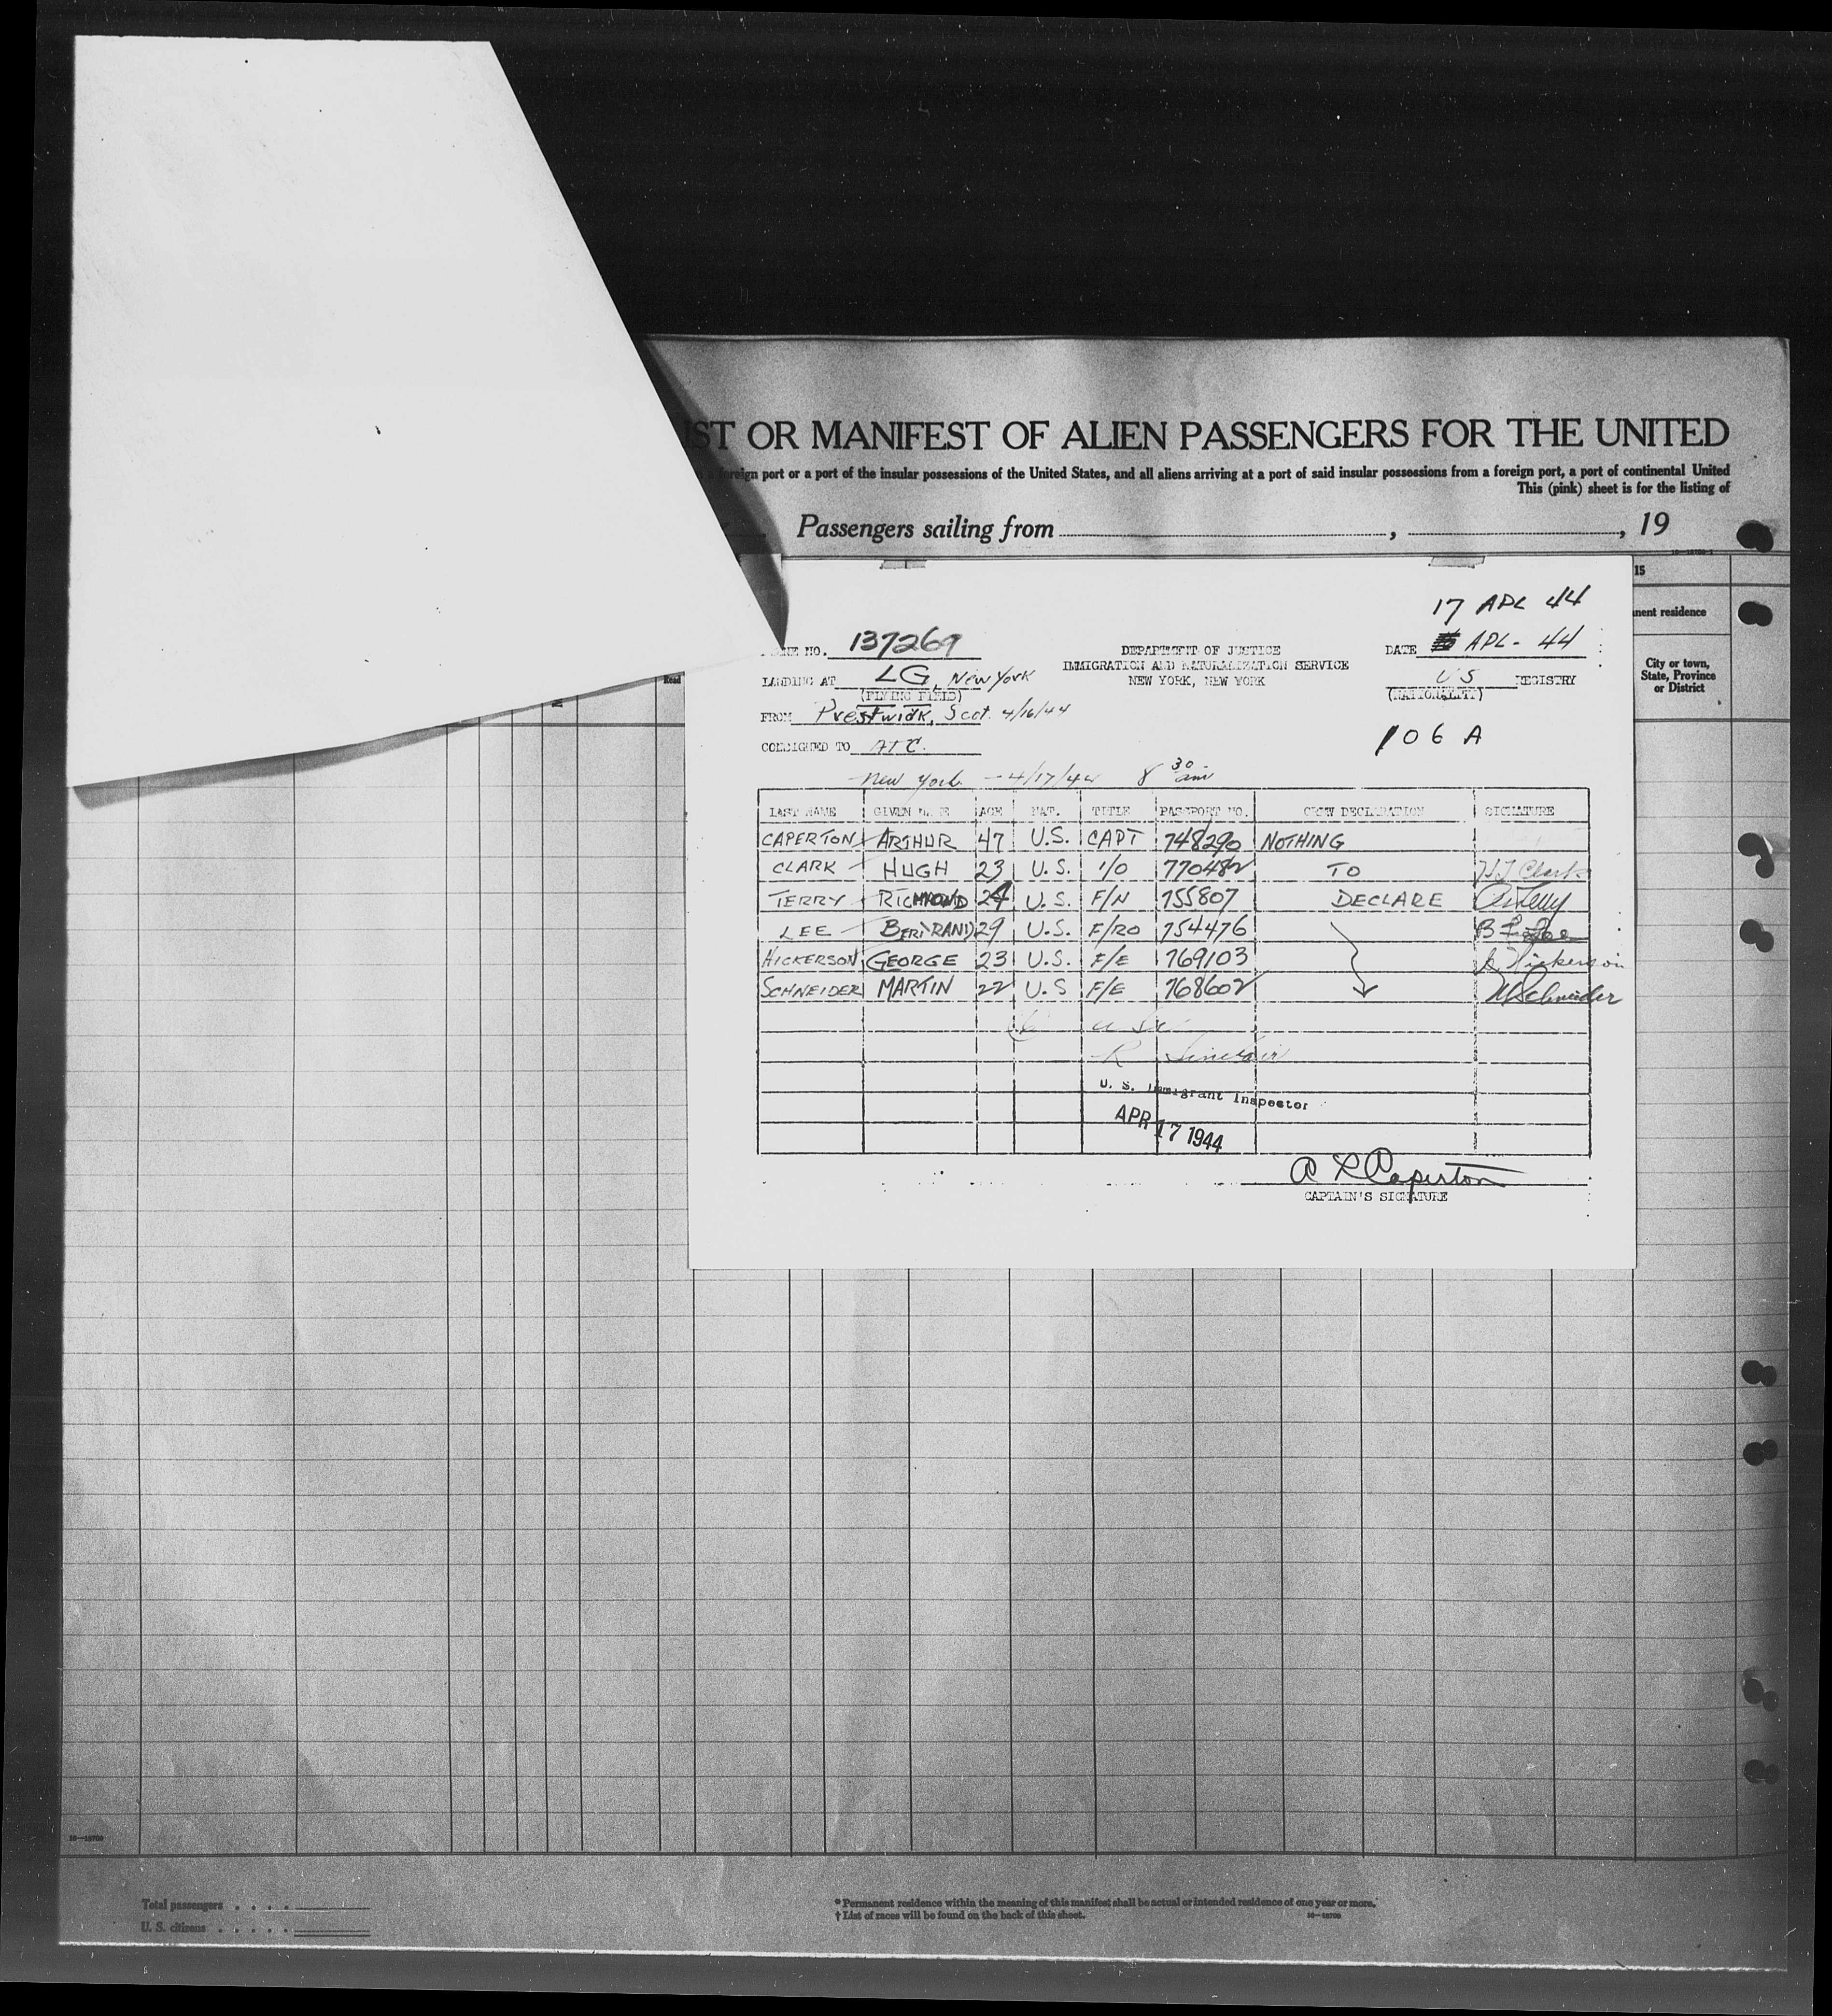 ST OR MANIFEST OF ALIEN PASSENGERS FOR THE UNITED
foreign port or a port of the insular possessions of the United States, and all aliens arriving at a port of said insular possessions from a foreign port, a port of continental United
This (pink) sheet is for the listing of
Passengers sailing from , , 19
15
nent residence
City or town, State, Province or District
Read
17 APL 44
NE NO. 137269
DEPARTMENT OF JUSTICE
DATE APL- 44
IMMIGRATION AND NATURALIZATION SERVICE
LANDING AT LG, New York
NEW YORK, NEW YORK
US REGISTRY
(FLYING FIELD)
(NATIONALITY)
FROM Prestwick, Scot. 4/16/44
106 A
CONSIGNED TO ATC.
New York - 4/17/44 8 30 am
LAST NAME GIVEN NAME AGE NAT. TITLE PASSPORT NO. CREW DECLARATION SIGNATURE
CAPERTON ARTHUR 47 U.S. CAPT 748290 NOTHING
CLARK HUGH 23 U.S. 1/O 770482 TO HJ Clark
TERRY RICHMOND 24 U.S. F/N 755807 DECLARE
LEE BERTRAND 29 U.S. F/RO 754476 B F Lee
HICKERSON GEORGE 23 U.S. F/E 769103 G Hickerson
SCHNEIDER MARTIN 22 U.S F/E 768602 M Schneider
R Sinclair
U. S. Immigrant Inspector
APR 17 1944
A L Caperton
CAPTAIN'S SIGNATURE
16—18709
Total passengers . . . .
U. S. citizens . . . . .
* Permanent residence within the meaning of this manifest shall be actual or intended residence of one year or more.
† List of races will be found on the back of this sheet.